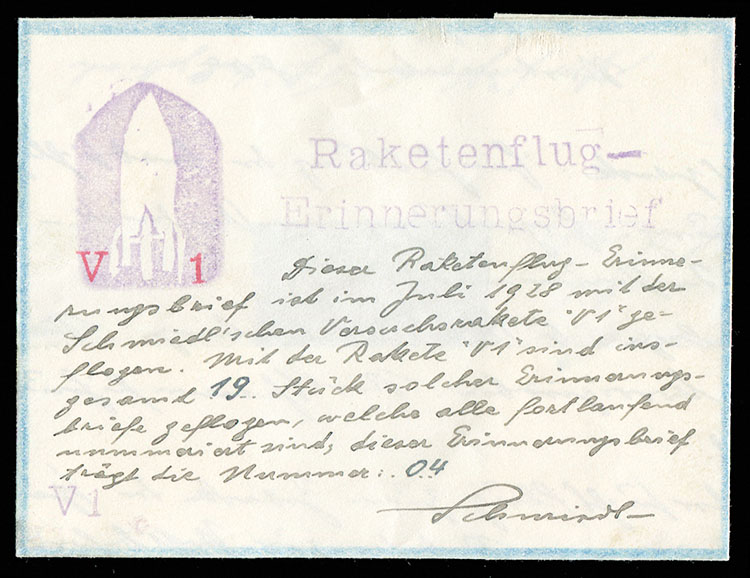 Raketenflug-
Erinnerungsbrief
V 1
Dieser Raketenflug-Erinne-
rungsbrief ist im Juli 1928 mit der
Schmiedl'schen Versuchsrakete "V1" ge-
flogen. Mit der Rakete "V1" sind ins-
gesamt 19.. Stück solcher Erinnerungs-
briefe geflogen, welche alle fortlaufend
nummeriert sind, dieser Erinnerungsbrief
trägt die Nummer: 04
V1
c
Schmiedl